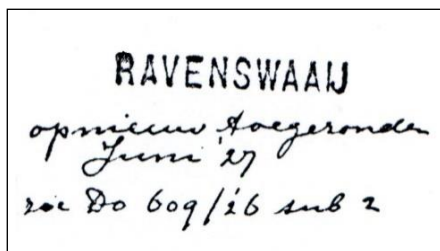 RAVENSWAAIJ
opnieuw toegezonden
Juni '27
zie Do 609/26 sub 2